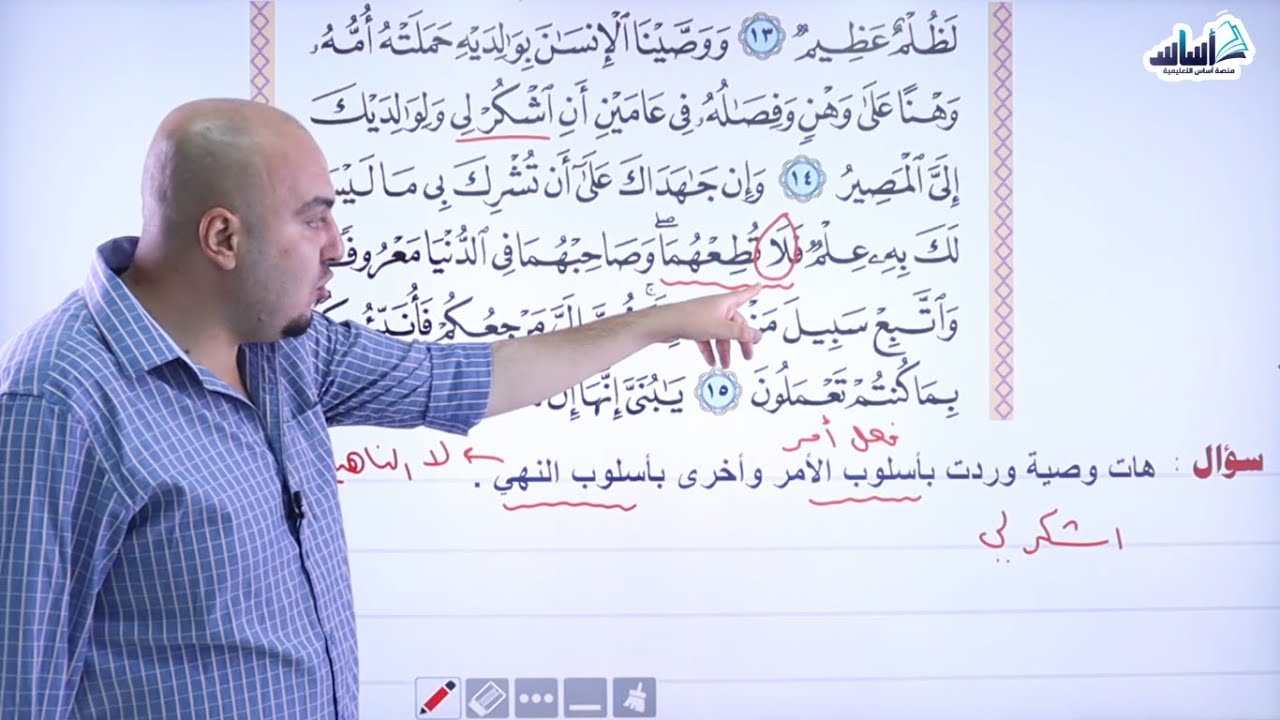 أساس
منصة أساس التعليمية
لَظُلْمٌ عَظِيمٌ ١٣ وَوَصَّيْنَا ٱلْإِنسَٰنَ بِوَٰلِدَيْهِ حَمَلَتْهُ أُمُّهُۥ
وَهْنًا عَلَىٰ وَهْنٍ وَفِصَٰلُهُۥ فِى عَامَيْنِ أَنِ ٱشْكُرْ لِى وَلِوَٰلِدَيْكَ
إِلَىَّ ٱلْمَصِيرُ ١٤ وَإِن جَٰهَدَاكَ عَلَىٰٓ أَن تُشْرِكَ بِى مَا لَيْسَ
لَكَ بِهِۦ عِلْمٌ فَلَا تُطِعْهُمَا ۖ وَصَاحِبْهُمَا فِى ٱلدُّنْيَا مَعْرُوفًا
وَٱتَّبِعْ سَبِيلَ مَنْ مَرْجِعُكُمْ
بِمَا كُنتُمْ تَعْمَلُونَ ١٥ يَٰبُنَىَّ إِنَّهَآ إِن
فعل أمر
سؤال : هات وصية وردت بأسلوب الأمر وأخرى بأسلوب النهي . ← لا
اشكر لي